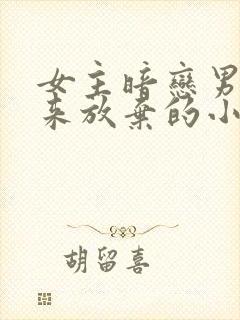 女主暗戀男
来放棄的小
胡留喜